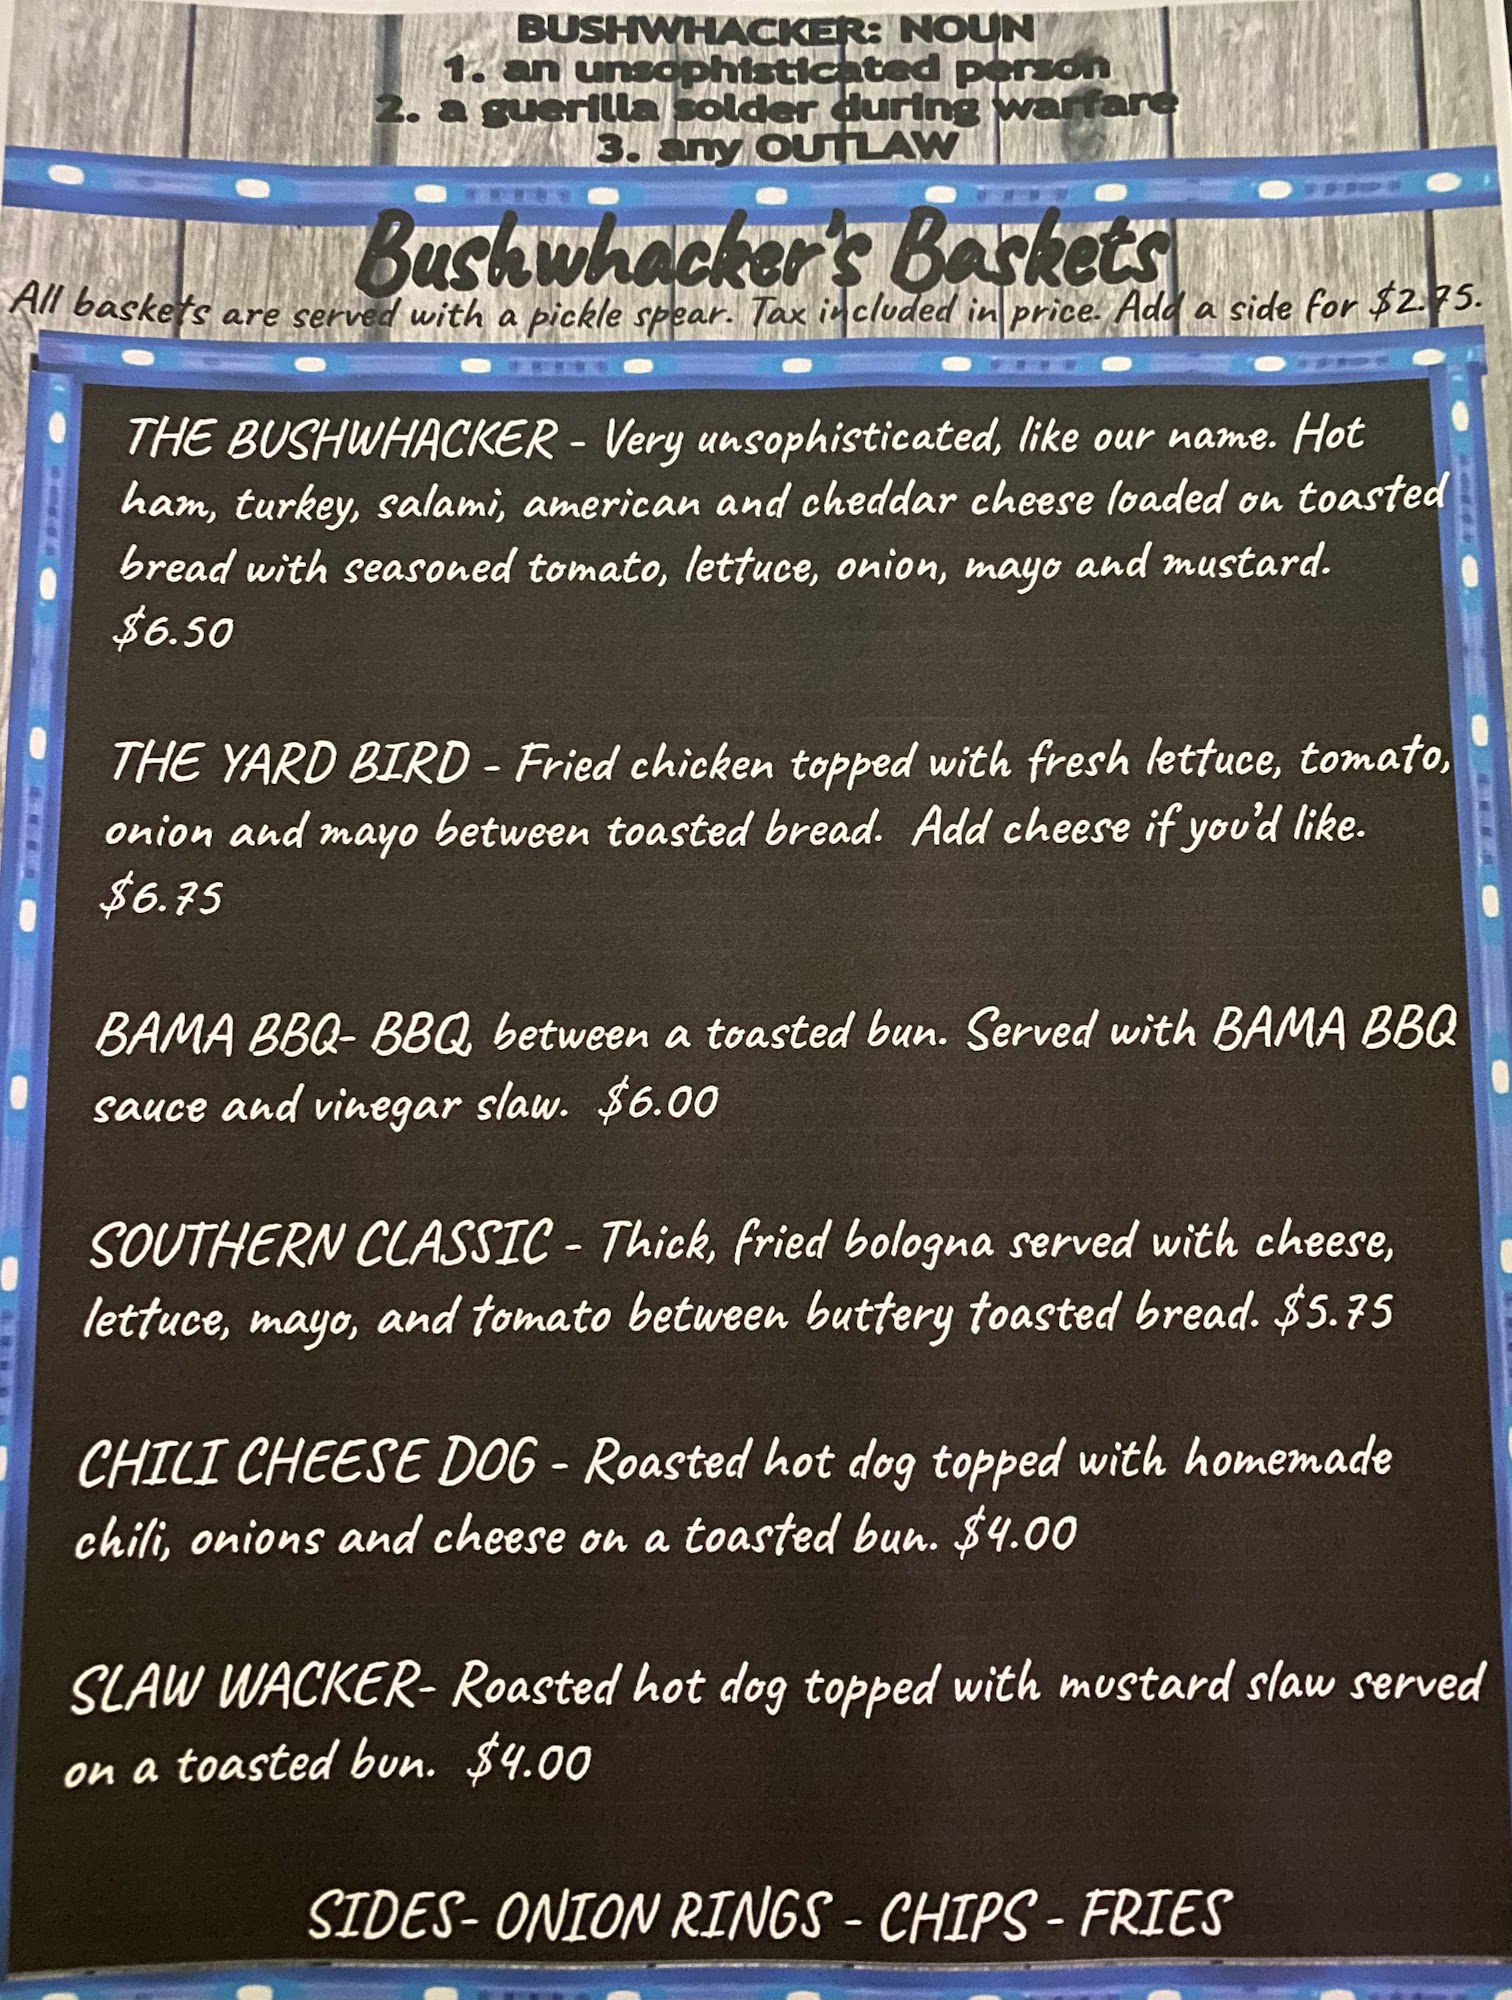 BUSHWHACKER: NOUN
1. an unsophisticated person
2. a guerilla solder during warfare
3. any OUTLAW
Bushwhacker's Baskets
All baskets are served with a pickle spear. Tax included in price. Add a side for $2.75.
THE BUSHWHACKER - Very unsophisticated, like our name. Hot
ham, turkey, salami, american and cheddar cheese loaded on toasted
bread with seasoned tomato, lettuce, onion, mayo and mustard.
$6.50
THE YARD BIRD - Fried chicken topped with fresh lettuce, tomato,
onion and mayo between toasted bread. Add cheese if you'd like.
$6.75
BAMA BBQ- BBQ between a toasted bun. Served with BAMA BBQ
sauce and vinegar slaw. $6.00
SOUTHERN CLASSIC - Thick, fried bologna served with cheese,
lettuce, mayo, and tomato between buttery toasted bread. $5.75
CHILI CHEESE DOG - Roasted hot dog topped with homemade
chili, onions and cheese on a toasted bun. $4.00
SLAW WACKER- Roasted hot dog topped with mustard slaw served
on a toasted bun. $4.00
SIDES- ONION RINGS - CHIPS - FRIES